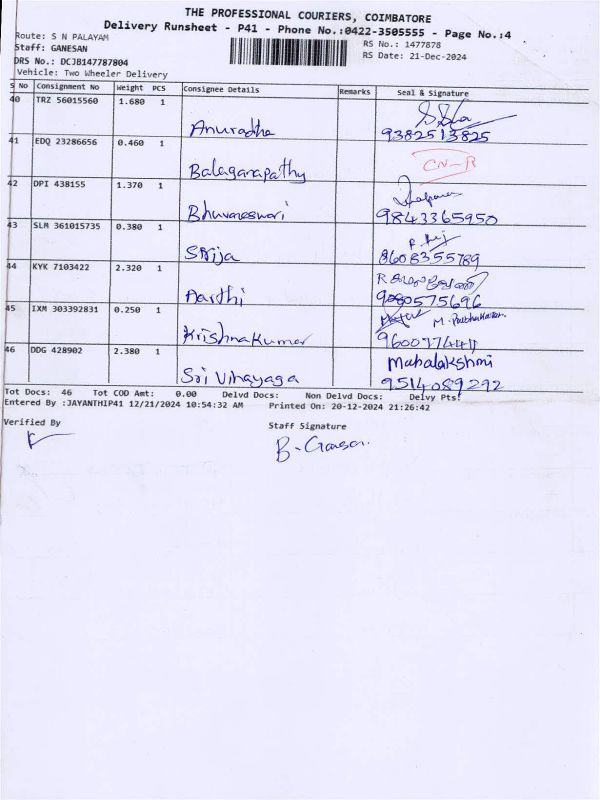 THE PROFESSIONAL COURIERS, COIMBATORE
Delivery Runsheet - P41 - Phone No.:0422-3505555 - Page No.:4
Route: S N PALAYAM
RS No.: 1477878
Staff: GANESAN
RS Date: 21-Dec-2024
DRS No.: DCJB147787804
Vehicle: Two Wheeler Delivery
S No Consignment No Weight PCS Consignee Details Remarks Seal & Signature
40 TRZ 56015560 1.680 1 Anuradha 9382513825
41 EDQ 23286656 0.460 1 Balaganapathy CN-R
42 DPI 438155 1.370 1 Bhuvaneswari 9843365950
43 SLM 361015735 0.380 1 Srija 8608355789
44 KYK 7103422 2.320 1 Aarthi
45 IXM 303392831 0.250 1 Krishnakumar
46 DDG 428902 2.380 1 Sri Vinayaga Mahalakshmi 9514089292
Tot Docs: 46 Tot COD Amt: 0.00 Delvd Docs: Non Delvd Docs: Delvy Pts:
Entered By :JAYANTHIP41 12/21/2024 10:54:32 AM Printed On: 20-12-2024 21:26:42
Verified By
Staff Signature